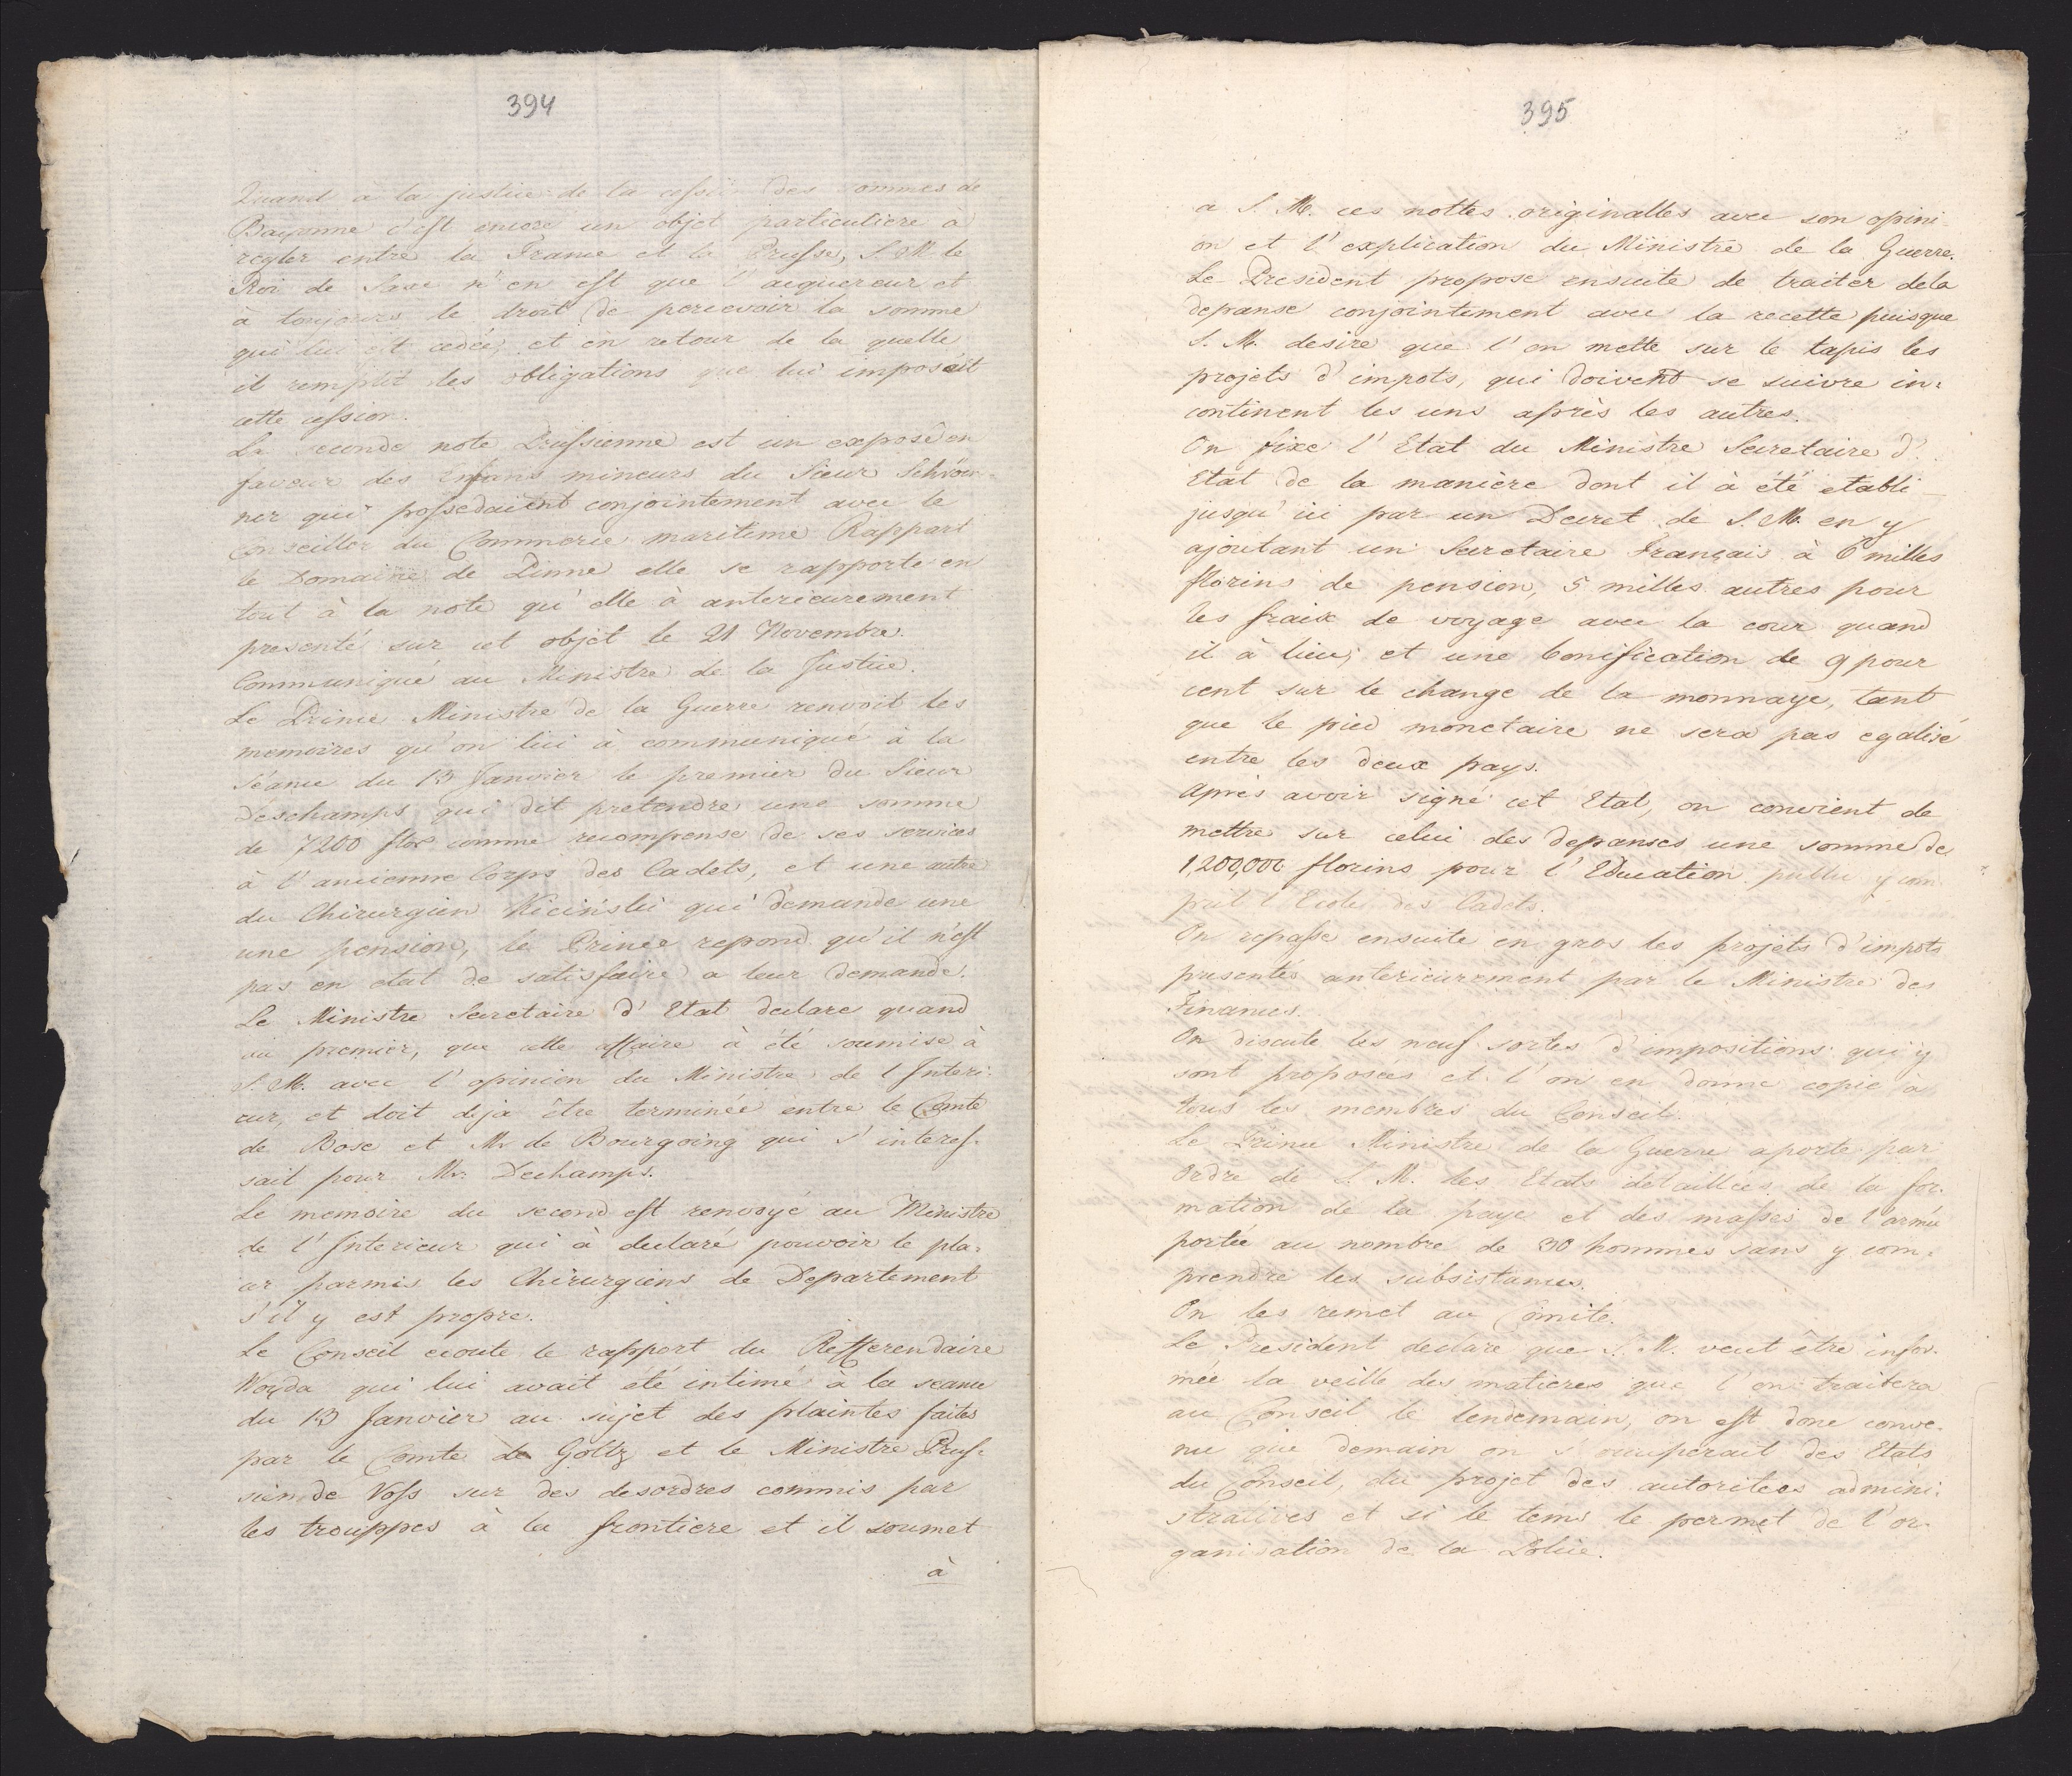 394
Quand à la justice de la cession des sommes de
Bayonne c'est encore un objet particuliere à
regler entre la France et la Prusse, S. M. le
Roi de Saxe n'en est que l'acquereur et
à toujours le droit de percevoir la somme
qui lui est cedée, et en retour de la quelle
il remplit les obligations que lui imposait
cette cession.
La seconde note Prussienne est un exposé en
faveur des enfans mineurs du Sieur Schröw-
ner qui possedaient conjointement avec le
Conseiller du Commerce maritime Rappart
le Domaine de Pinne elle se rapporte en
tout à la note qu'elle à anterieurement
presenté sur cet objet le 21 Novembre.
Communiqué au Ministre de la Justice.
Le Prince Ministre de la Guerre renvoit les
memoires qu'on lui à communiqué à la
séance du 13 Janvier le premier du Sieur
Déschamps qui dit pretendre une somme
de 7200 flor comme recompense de ses services
à l'ancienne Corps des Cadets, et une autre
du Chirurgien Kiciński qui demande une
une pension, le Prince repond qu'il n'est
pas en etat de satisfaire a leur demande.
Le Ministre Secretaire d'Etat declare quand
au premier, que cette affaire à été soumise à
S. M. avec l'opinion du Ministre de l'Interi-
eur, et doit deja être terminée entre le Comte
de Bose et Mr de Bourgoing qui s'interes-
sait pour Mr: Dechamps.
Le memoire du second est renvoyé au Ministre
de l'Interieur qui à declaré pouvoir le pla-
cer parmis les Chirurgiens de Departement
s'il y est propre.
Le Conseil ecoute le rapport du Refferendaire
Woyda qui lui avait été intimé à la seance
du 13 Janvier au sujet des plaintes faites
par le Comte de Goltz et le Ministre Prus-
sien de Voss sur des desordres commis par
les trouppes à la frontiere et il soumet
à
395
a S. M. ces nottes originalles avec son opini-
on et l'explication du Ministre de la Guerre.
Le President propose ensuite de traiter dela
depanse conjointement avec la recette puisque
S. M. desire que l'on mette sur le tapis les
projets d'impots, qui doivent se suivre in-
continent les uns après les autres.
On fixe l'Etat du Ministre Secretaire d'
Etat de la manière dont il à été etabli
jusqu'ici par un Decret de S. M. en y
ajoutant un Secretaire Français à 6 milles
florins de pension, 5 milles autres pour
les fraix de voyage avec la cour quand
il à lieu, et une bonification de 9 pour
cent sur le change de la monnaye, tant
que le pied monetaire ne sera pas egalisé
entre les deux pays.
Après avoir signé cet Etat, on convient de
mettre sur celui des depanses une somme de
1,200,000 florins pour l'Education publu y com
prit l'Ecole des Cadets.
On repasse ensuite en gros les projets d'impots
presentés anterieurement par le Ministre des
Finances.
On discute les neuf sortes d'impositions qui y
sont proposées et l'on en donne copie à
tous les membres du Conseil.
Le Prince Ministre de la Guerre aporte par
Ordre de S. M. les Etats detaillées de la for-
mation de la paye et des masses de l'armée
portée au nombre de 30 hommes sans y com-
prendre les subsistances.
On les remet au Comite.
Le President declare que S. M. veut être infor-
mée la veille des matieres que l'on traitera
au Conseil le lendemain, on est donc conve-
nu que demain on s'occuperait des Etats
du Conseil, du projet des autoritees admini-
stratives et si le tems le permet de l'or-
ganisation de la Police.